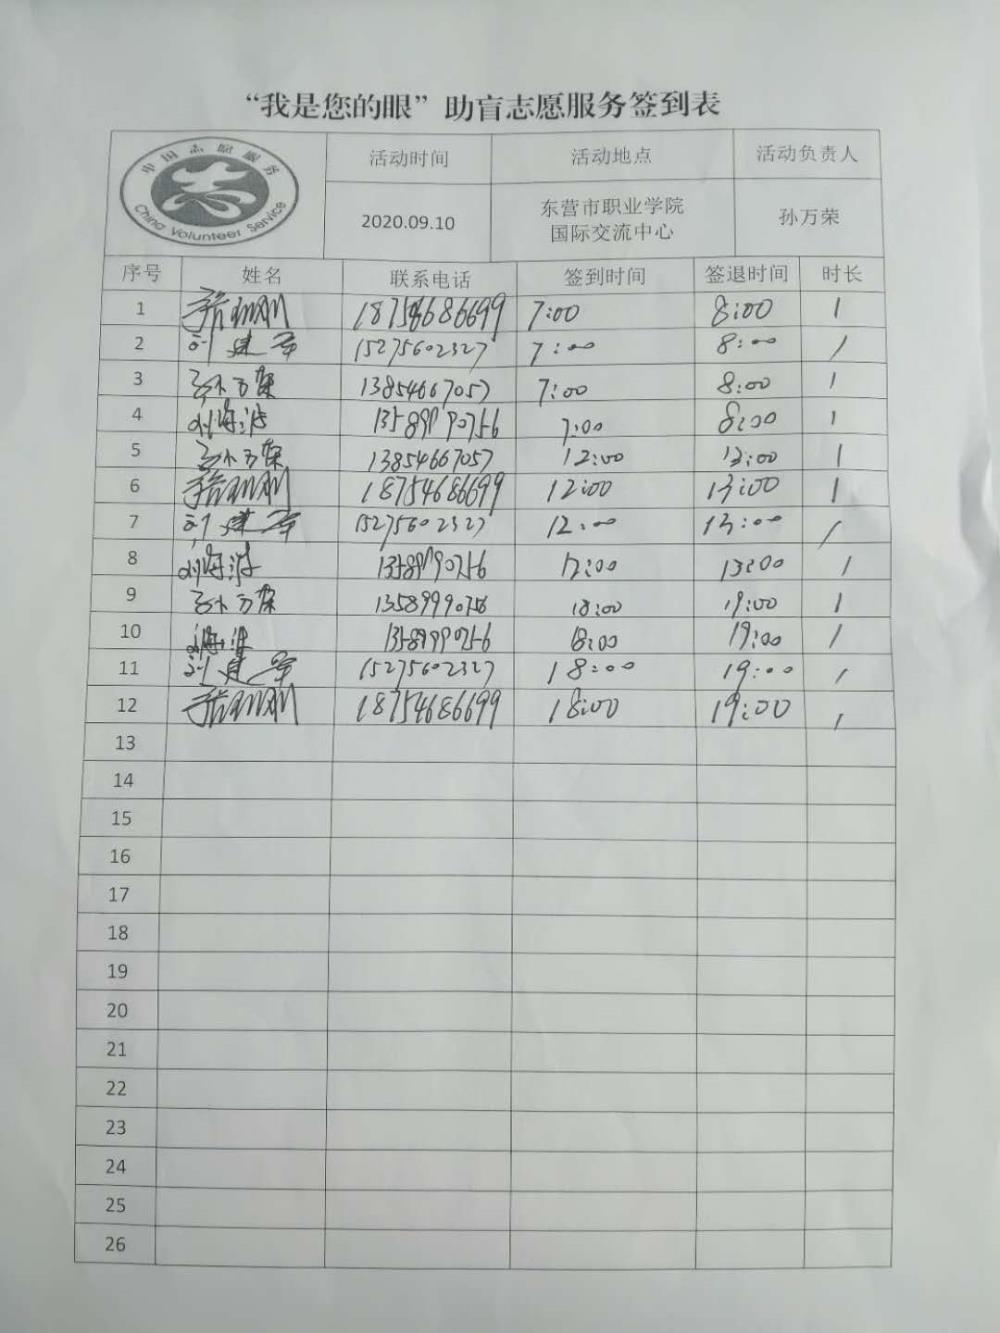 “我是您的眼”助盲志愿服务签到表
中国志愿服务
China Volunteer Service
活动时间 活动地点 活动负责人
2020.09.10 东营市职业学院 国际交流中心 孙万荣
序号 姓名 联系电话 签到时间 签退时间 时长
1 18754686699 7:00 8:00 1
2 刘建军 15275602327 7:00 8:00 1
3 孙万荣 13854667057 7:00 8:00 1
4 刘海波 13589990756 7:00 8:00 1
5 孙万荣 13854667057 12:00 13:00 1
6 18754686699 12:00 13:00 1
7 刘建军 15275602327 12:00 13:00 1
8 刘海波 13589990756 12:00 13:00 1
9 孙万荣 13589990756 18:00 19:00 1
10 刘海波 13589990756 18:00 19:00 1
11 刘建军 15275602327 18:00 19:00 1
12 18754686699 18:00 19:00 1
13
14
15
16
17
18
19
20
21
22
23
24
25
26